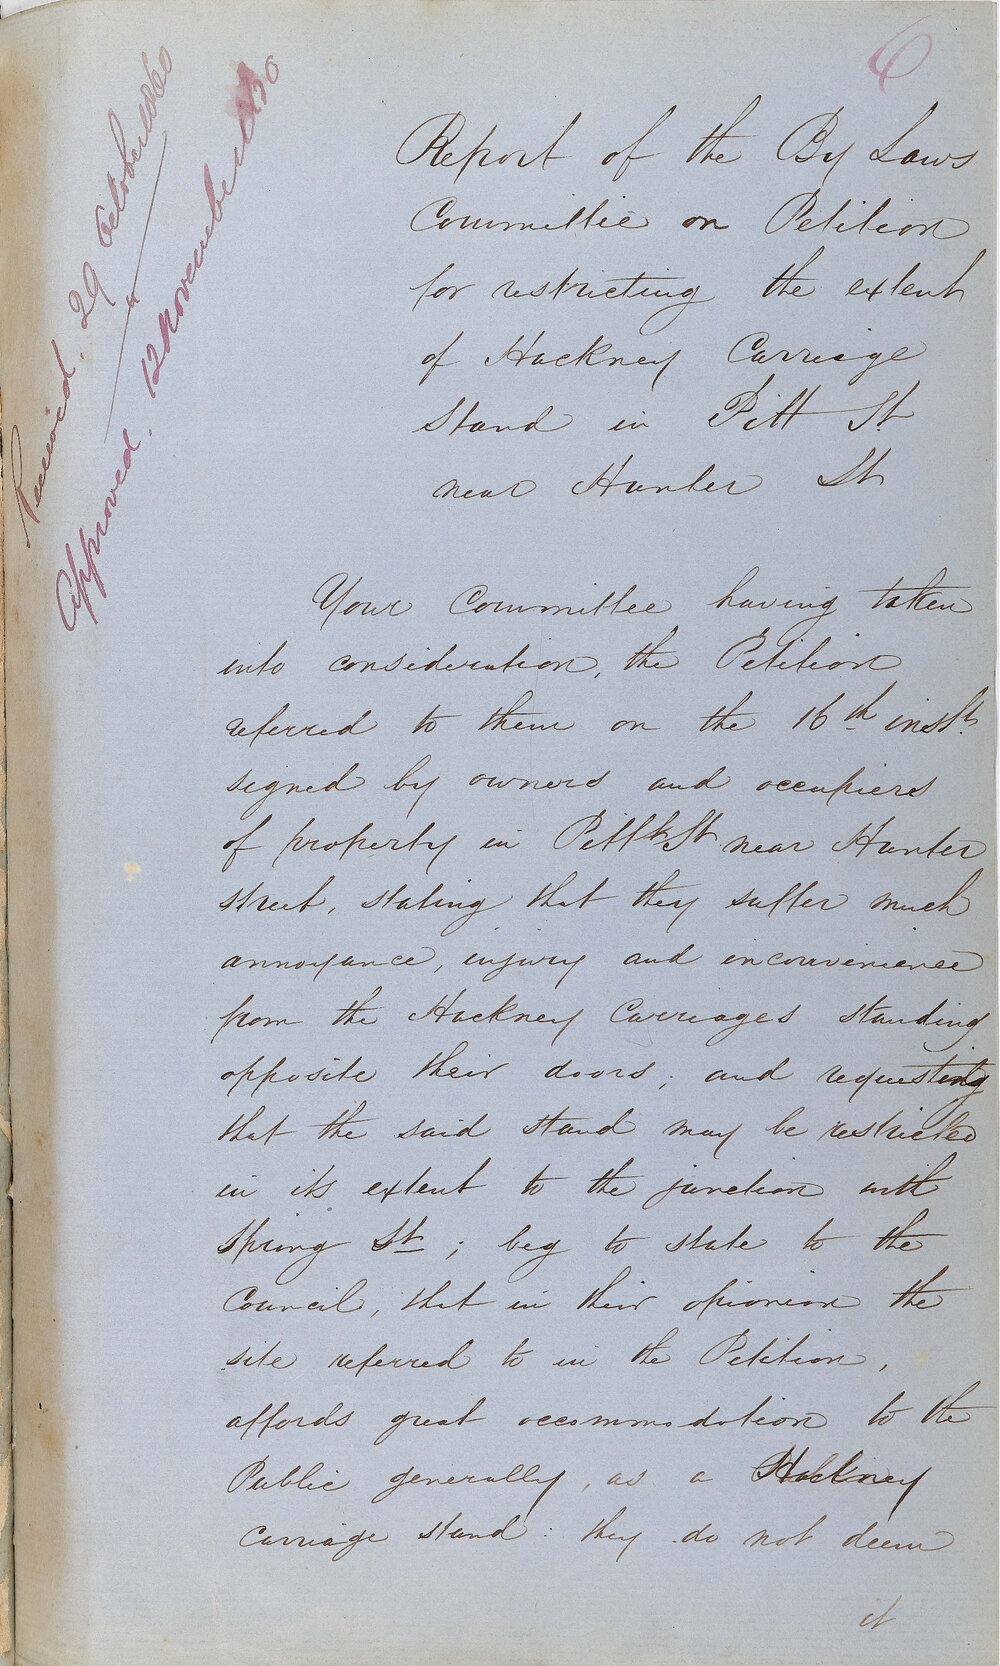 6
Received. 29 October 1860
Approved. 12 November 1860
Report of the By Laws
Committee on Petition
for restricting the extent
of Hackney Carriage
Stand in Pitt St
near Hunter St
Your Committee having taken
into consideration, the Petition
referred to them on the 16th inst.
signed by owners and occupiers
of property in Pitt St near Hunter
street, stating that they suffer much
annoyance, injury and inconvenience
from the Hackney Carriages standing
opposite their doors; and requesting
that the said stand may be restricted
in its extent to the junction with
Spring St; beg to state to the
Council, that in their opionion the
site referred to in the Petition,
affords great accommodation to the
Public generally, as a Hackney
Carriage stand: they do not deem
it